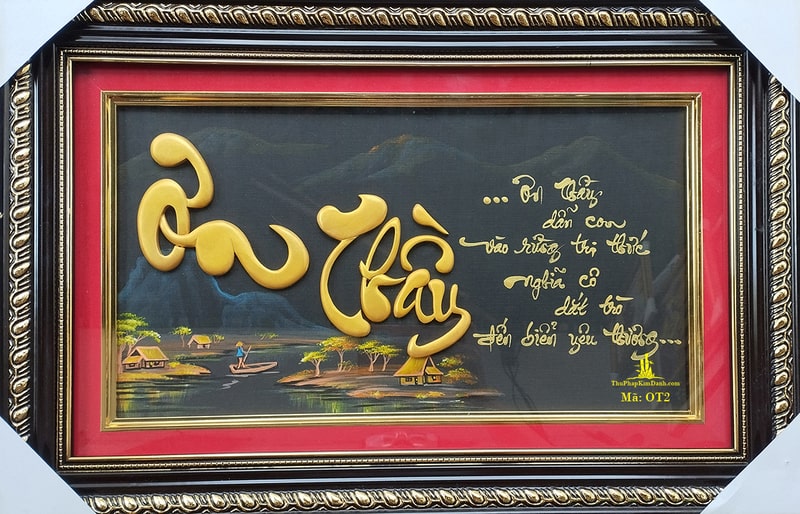 Ơn Thầy
... Ơn Thầy
dẫn con
vào rừng tri thức
nghĩa cô
dắt trò
đến biển yêu thương...
ThuPhapKimDanh.com
Mã: OT2